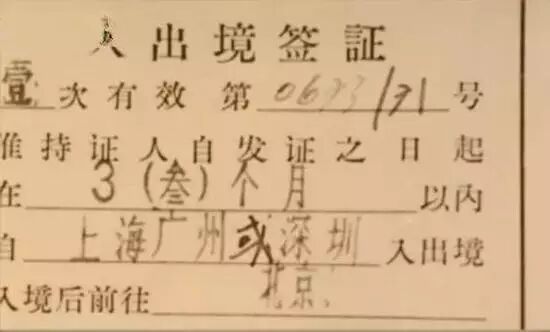 入出境签証
壹次有效第0633/31号
准持证人自发证之日起
在3(叁)个月以内
自上海广州或深圳入出境
入境后前往北京